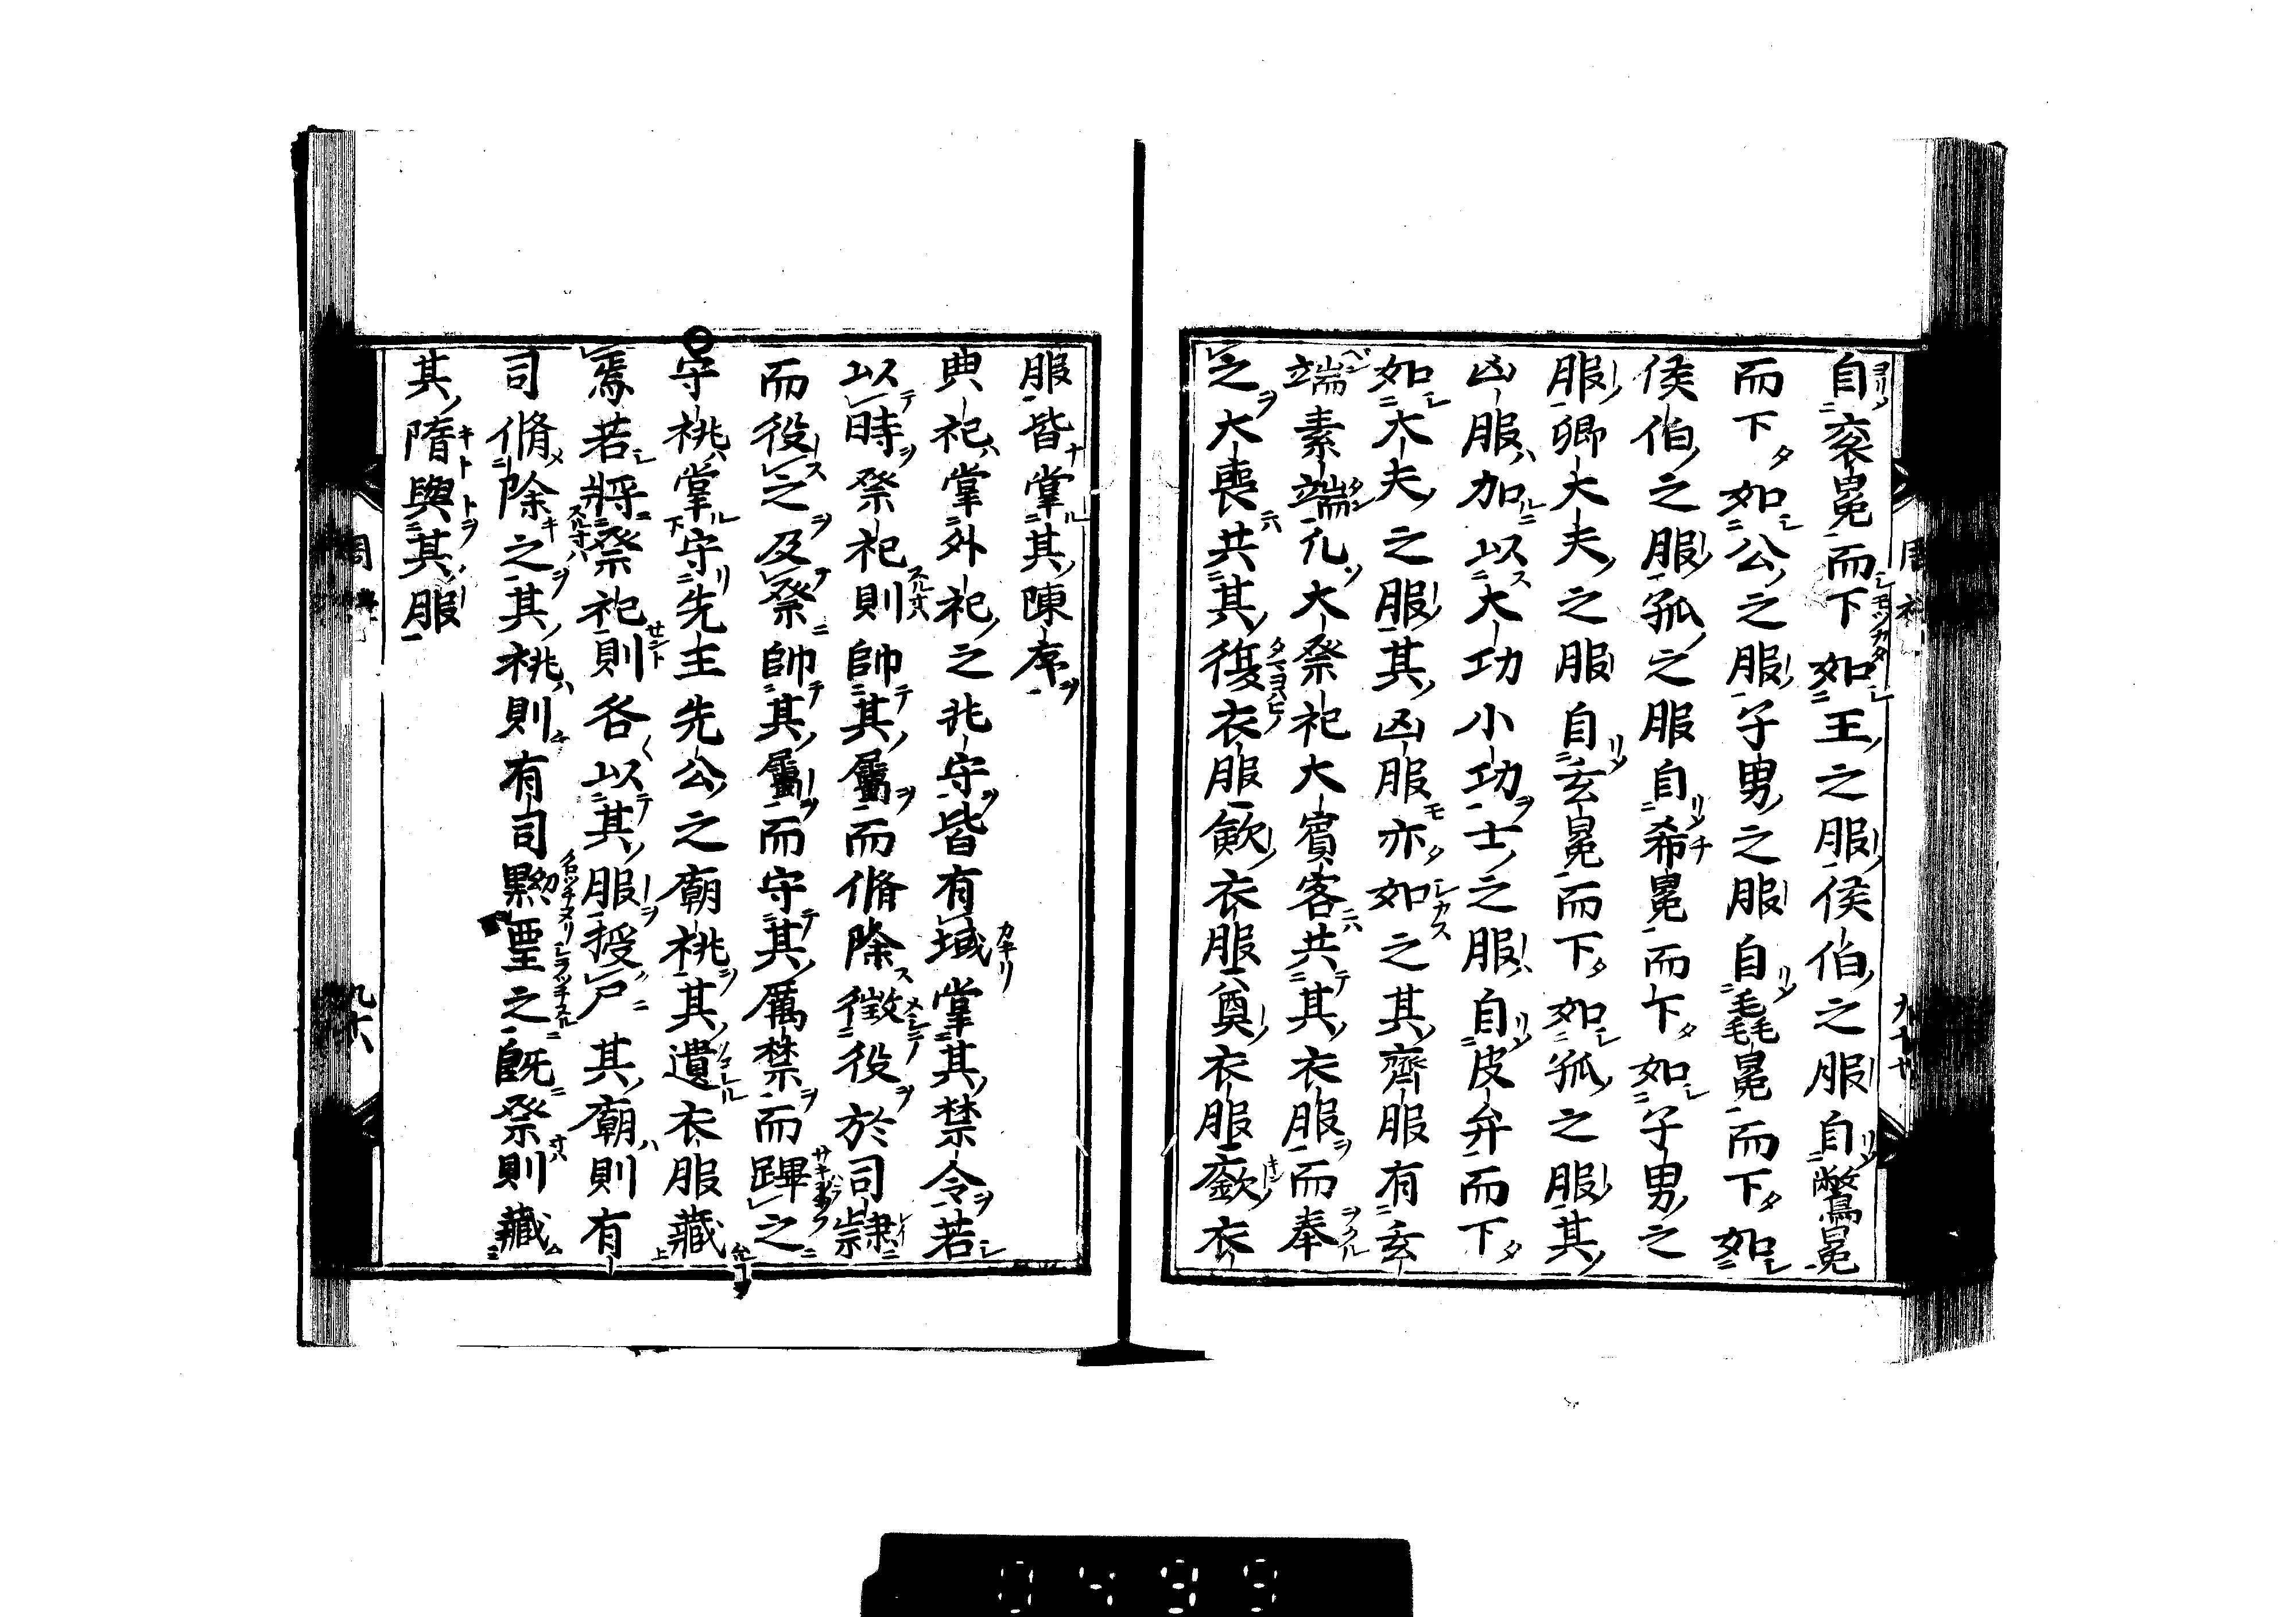 自袞冕而下如王之服侯伯之服自鷩冕
而下如公之服子男之服自毳冕而下如
侯伯之服孤之服自希冕而下如子男之
服卿大夫之服自玄冕而下如孤之服其
凶服加以大功小功士之服自皮弁而下
如大夫之服其凶服亦如之其齊服有玄
端素端凡大祭祀大賓客共其衣服而奉
之大喪共其復衣服斂衣服奠衣服廞衣
服皆掌其陳序
典祀掌外祀之兆守皆有域掌其禁令若
以時祭祀則帥其屬而脩除徵役於司隷
而役之及祭帥其屬而守其厲禁而蹕之
守祧掌守先王先公之廟祧其遺衣服藏
焉若將祭祀則各以其服授尸其廟則有
司脩除之其祧則有司黝堊之既祭則藏
其隋與其服
0499